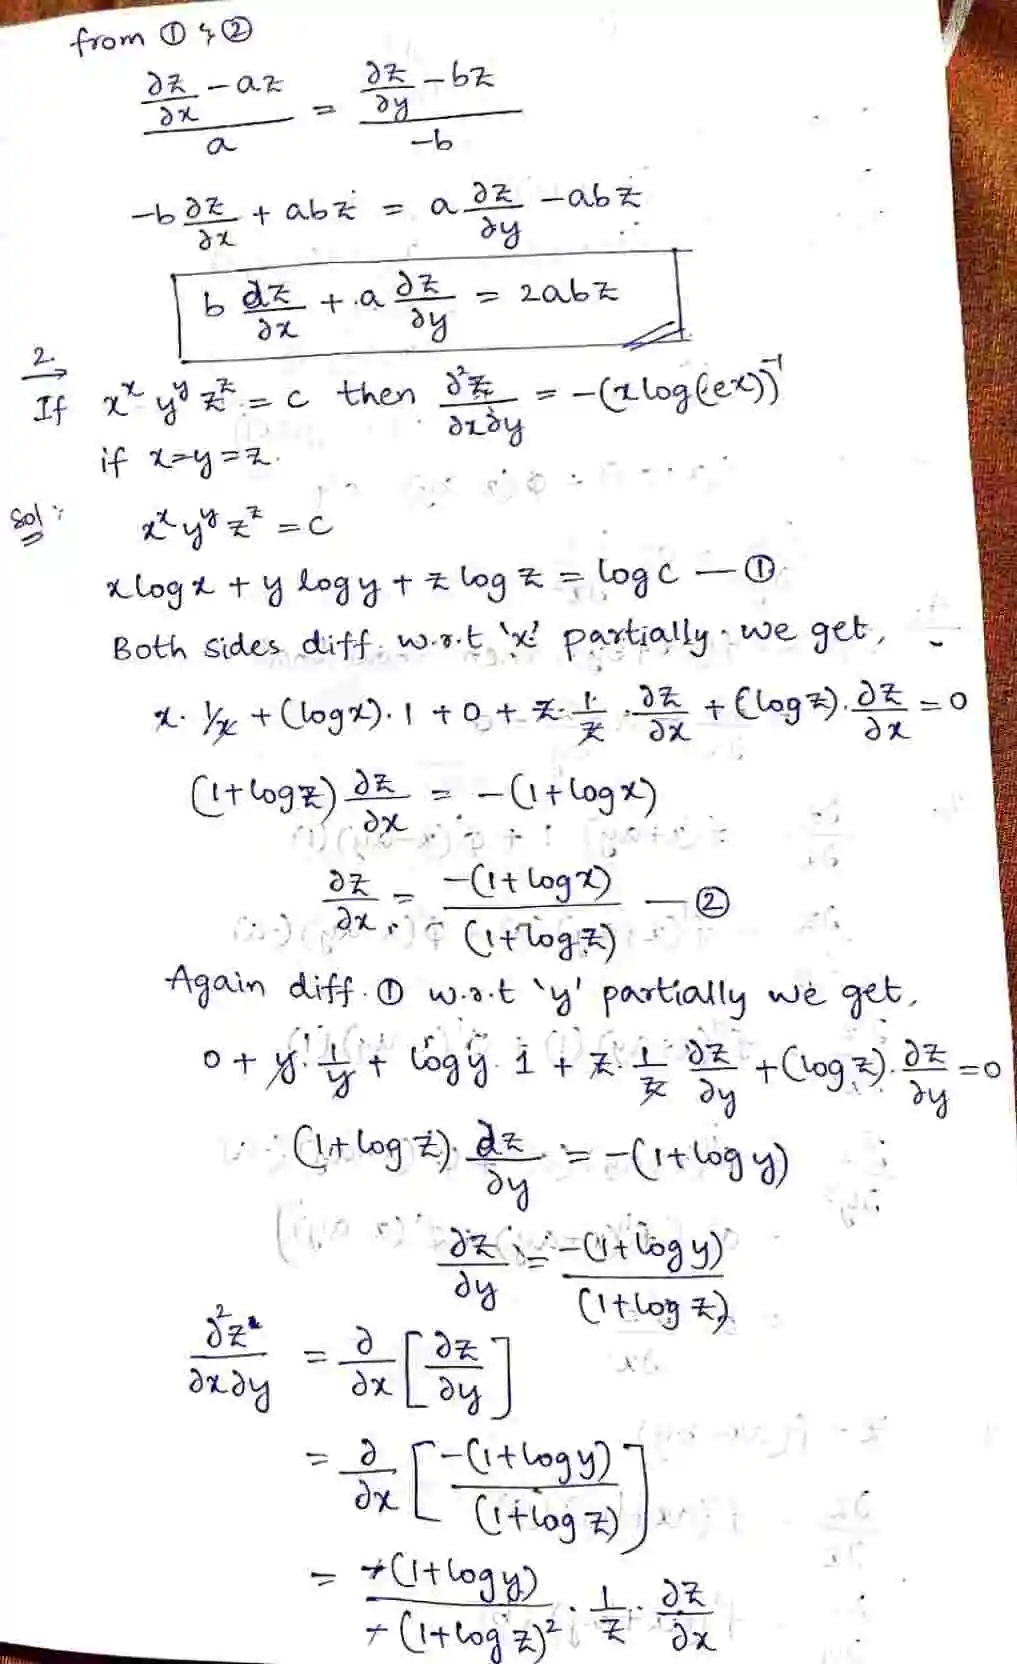 from ① & ②
(∂z/∂x - az)/a = (∂z/∂y - bz)/-b
-b ∂z/∂x + abz = a ∂z/∂y - abz
b dz/∂x + a ∂z/∂y = 2abz
2.
If x^x y^y z^z = c then ∂²z/∂x∂y = -(x log(ex))^-1
if x=y=z.
Sol:
x^x y^y z^z = c
x log x + y log y + z log z = log c — ①
Both sides diff. w.r.t 'x' partially we get,
x. 1/x + (log x). 1 + 0 + z. 1/z . ∂z/∂x + (log z). ∂z/∂x = 0
(1+log z) ∂z/∂x = -(1+log x)
∂z/∂x = -(1+log x)/(1+log z) — ②
Again diff. ① w.r.t 'y' partially we get,
0 + y. 1/y + log y. 1 + z. 1/z ∂z/∂y + (log z). ∂z/∂y = 0
(1+log z). dz/∂y = -(1+log y)
∂z/∂y = -(1+log y)/(1+log z)
∂²z/∂x∂y = ∂/∂x [∂z/∂y]
= ∂/∂x [-(1+log y)/(1+log z)]
= +(1+log y)/+(1+log z)² . 1/z . ∂z/∂x